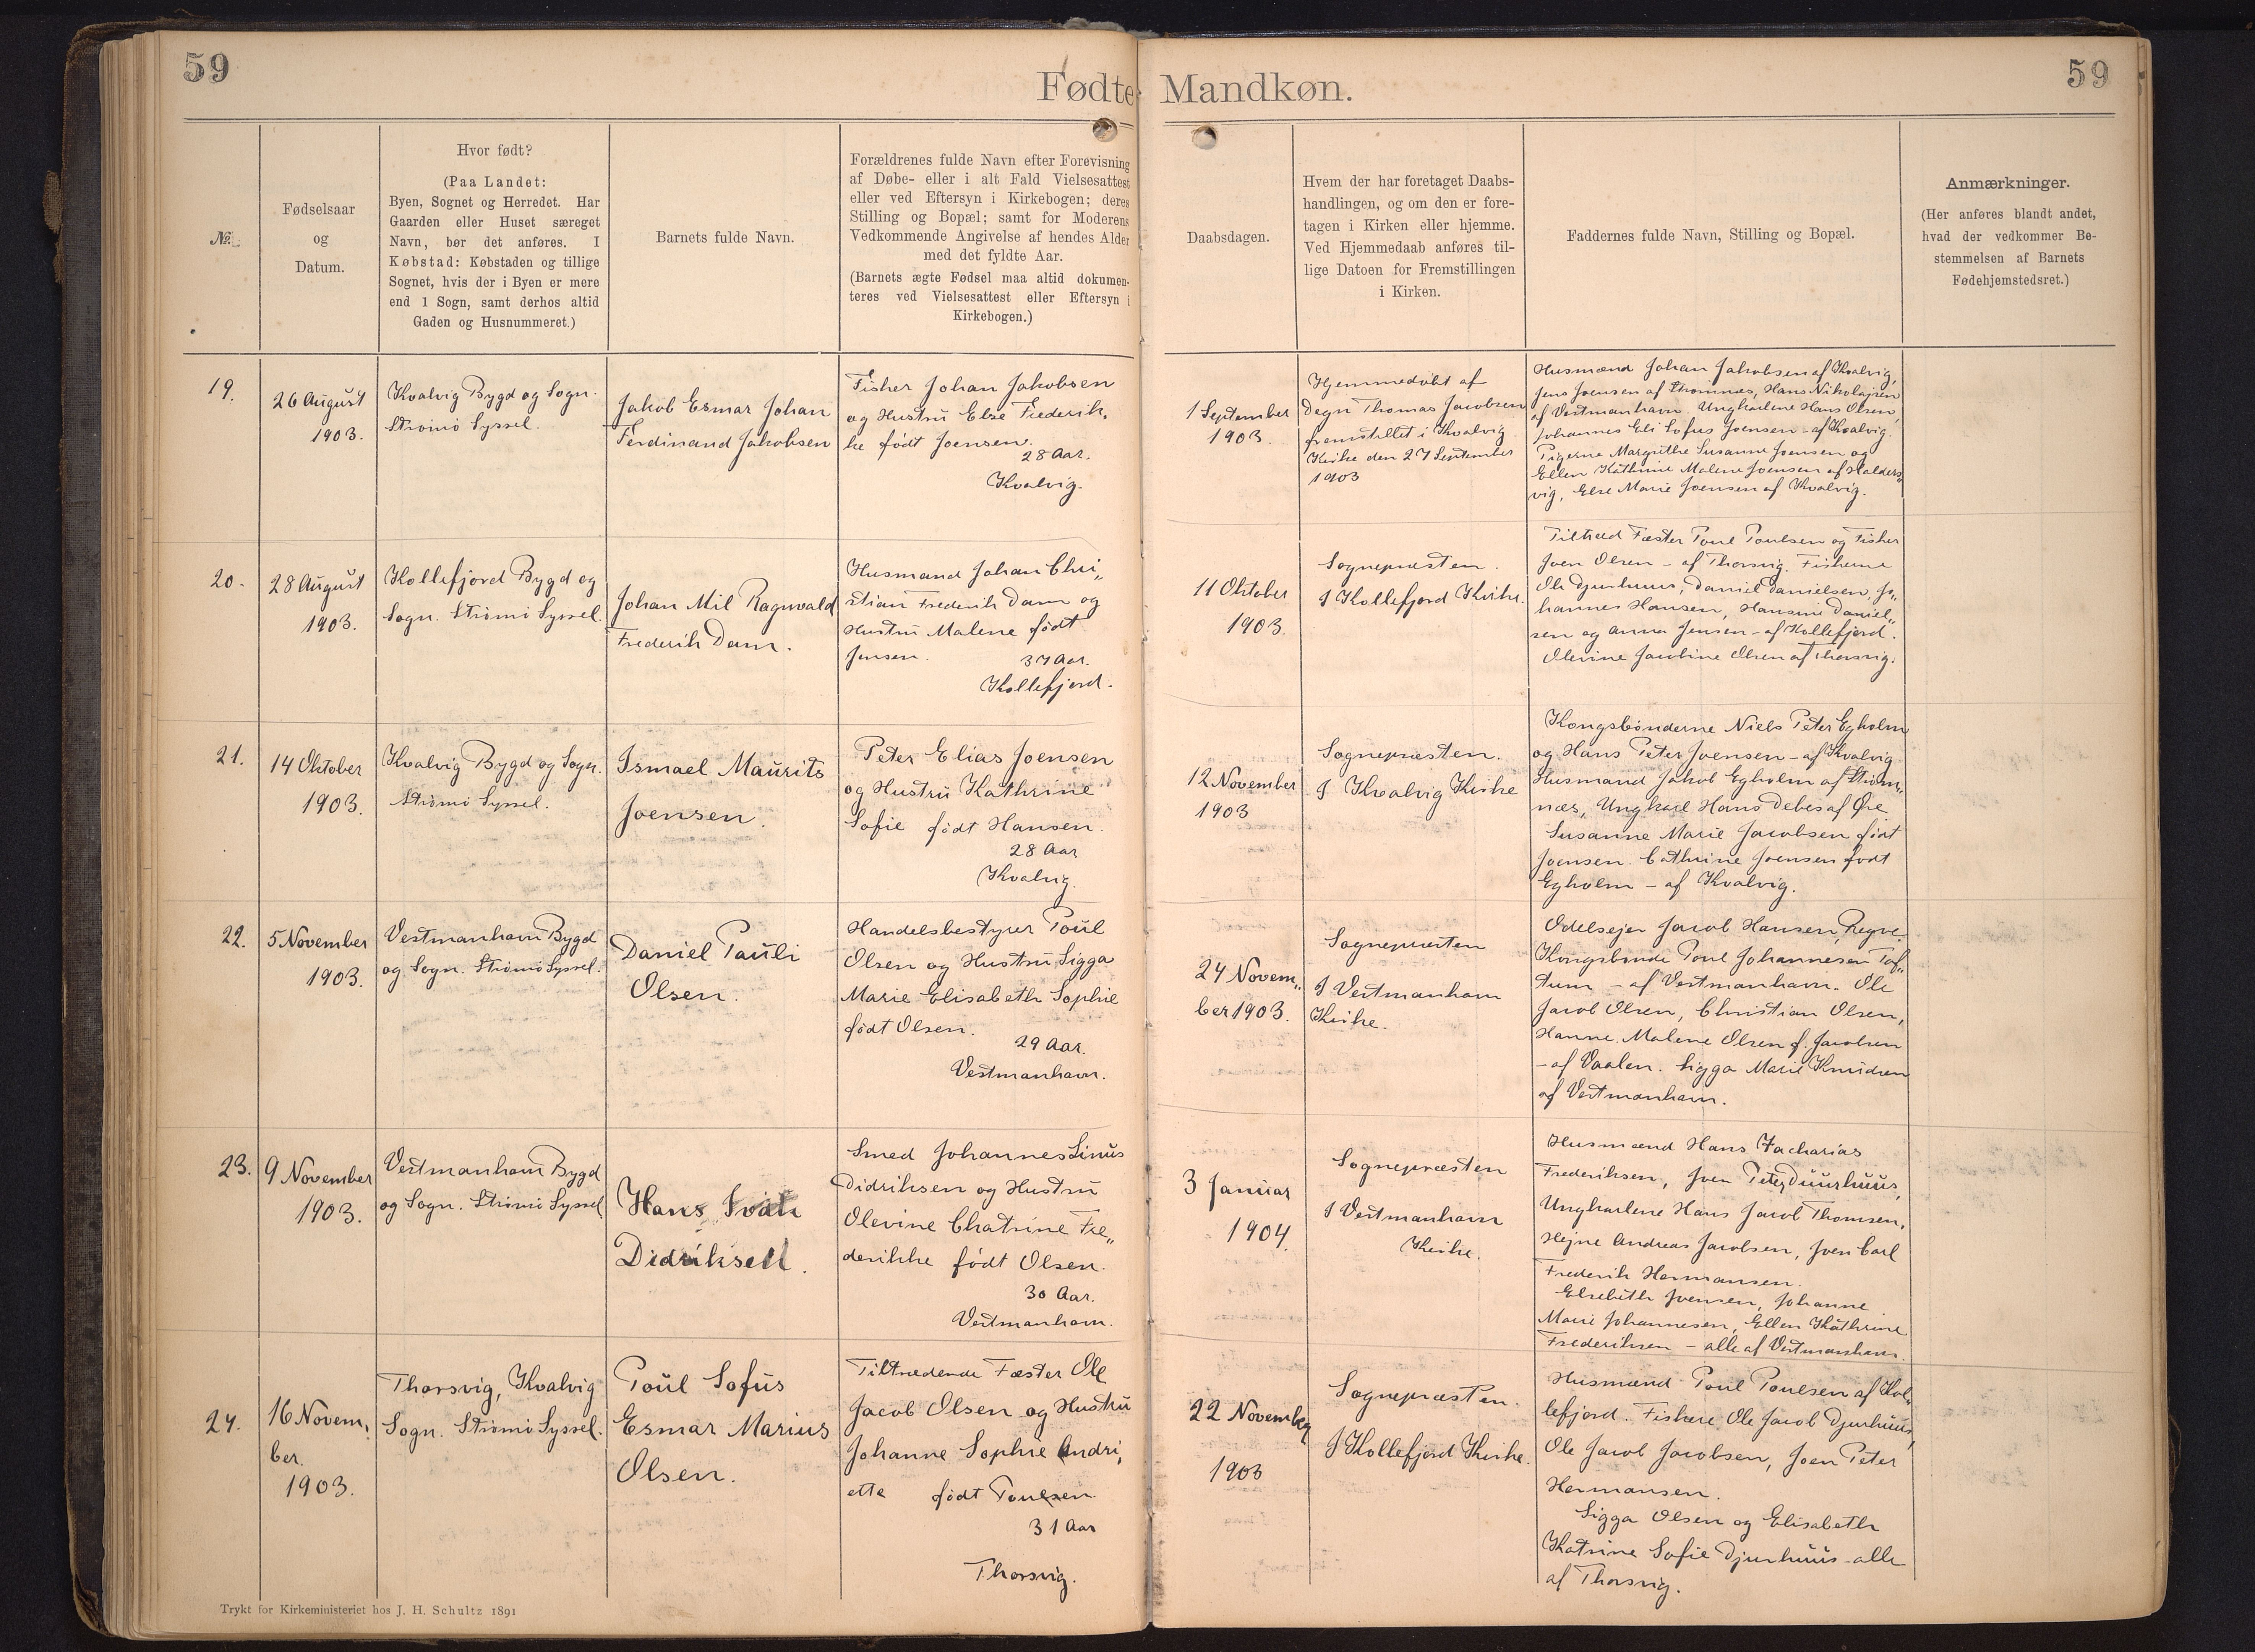 59
59
Fødte Mandkøn.
№
Fødselsaar
og
Datum.
Hvor født?
(Paa Landet:
Byen, Sognet og Herredet. Har
Gaarden eller Huset særeget
Navn, bør det anføres. I
Købstad: Købstaden og tillige
Sognet, hvis der i Byen er mere
end 1 Sogn, samt derhos altid
Gaden og Husnummeret.)
Barnets fulde Navn.
Forældrenes fulde Navn efter Forevisning
af Døbe- eller i alt Fald Vielsesattest
eller ved Eftersyn i Kirkebogen; deres
Stilling og Bopæl; samt for Moderens
Vedkommende Angivelse af hendes Alder
med det fyldte Aar.
(Barnets ægte Fødsel maa altid dokumen-
teres ved Vielsesattest eller Eftersyn i
Kirkebogen.)
Daabsdagen.
Hvem der har foretaget Daabs-
handlingen, og om den er fore-
tagen i Kirken eller hjemme.
Ved Hjemmedaab anføres til-
lige Datoen for Fremstillingen
i Kirken.
Faddernes fulde Navn, Stilling og Bopæl.
Anmærkninger.
(Her anføres blandt andet,
hvad der vedkommer Be-
stemmelsen af Barnets
Fødehjemstedsret.)
19.
26 August
1903.
Kvalvig Bygd og Sogn.
Strømø Syssel.
Jakob Esmar Johan
Ferdinand Jakobsen
Fisker Johan Jakobsen
og Hustru Else Frederik,
ke født Joensen.
28 Aar.
Kvalvig.
1 September
1903.
Hjemmedøbt af
Degn Thomas Jacobsen
fremstillet i Kvalvig
Kirke den 27 September
1903
Husmænd Johan Jakobsen af Kvalvig,
Jens Joensen af Strømnæs, Hans Nikolajsen
af Vestmanhavn. Ungkarlene Hans Olsen,
Johannes Eli Sofus Joensen - af Kvalvig.
Pigerne Margrethe Susanne Joensen og
Ellen Kathrine Malene Joensen af Halders„
vig, Else Marie Joensen af Kvalvig.
20.
28 August
1903.
Kollefjord Bygd og
Sogn. Strømø Syssel.
Johan Mil Ragnvald
Frederik Dam.
Husmand Johan Chri„
stian Frederik Dam og
Hustru Malene født
Jensen.
37 Aar.
Kollefjord.
11 Oktober
1903.
Sognepræsten.
I Kollefjord Kirke.
Tiltræd Fæster Poul Poulsen og Fisker
Joen Olsen - af Thorsvig. Fiskerne
Ole Djurhuus, Daniel Danielsen, Jo„
hannes Hansen, Hansine Daniel„
sen og Anna Jensen - af Kollefjord.
Olevine Jacobine Olsen af Thorsvig.
21.
14 Oktober
1903.
Kvalvig Bygd og Sogn.
Strømø Syssel.
Ismael Maurits
Joensen.
Peter Elias Joensen
og Hustru Kathrine
Sofie født Hansen.
28 Aar
Kvalvig.
12 November
1903
Sognepræsten.
I Kvalvig Kirke
Kongsbønderne Niels Peter Egholm
og Hans Peter Joensen - af Kvalvig
Husmand Jakob Egholm af Strøm„
næs, Ungkarl Hans Debes af Øre
Susanne Marie Jacobsen født
Joensen. Cathrine Joensen født
Egholm - af Kvalvig.
22.
5 November
1903.
Vestmanhavn Bygd
og Sogn. Strømø Syssel.
Daniel Pauli
Olsen.
Handelsbestyrer Poul
Olsen og Hustru Sigga
Marie Elisabeth Sophie
født Olsen.
29 Aar.
Vestmanhavn.
24 Novem„
ber 1903.
Sognepræsten
I Vestmanhavn
Kirke.
Odelsejer Jacob Hansen,
Kongsbonde Poul Johannesen Tof„
tum - af Vestmanhavn. Ole
Jacob Olsen, Christian Olsen,
Hanne Malene Olsen f. Jacobsen
- af Vaalen. Sigga Marie Knudsen
af Vestmanhavn.
23.
9 November
1903.
Vestmanhavn Bygd
og Sogn. Strømø Syssel
Hans
Didriksen.
Smed Johannes Linus
Didriksen og Hustru
Olevine Chatrine Fre„
derikke født Olsen.
30 Aar.
Vestmanhavn.
3 Januar
1904.
Sognepræsten
I Vestmanhavn
Kirke.
Husmænd Hans Zacharias
Frederiksen, Joen Peter Duurhuus,
Ungkarlene Hans Jacob Thomsen,
Hejne Andreas Jacobsen, Joen Carl
Frederik Hermansen.
Elsebeth Joensen, Johanne
Marie Johannesen, Ellen Kathrine
Frederiksen - alle af Vestmanhavn.
24.
16 Novem,
ber.
1903.
Thorsvig, Kvalvig
Sogn. Strømø Syssel.
Poul Sofus
Esmar Marius
Olsen.
Tiltrædende Fæster Ole
Jacob Olsen og Hustru
Johanne Sophie Andri,
ette født Poulsen.
31 Aar
Thorsvig.
22 November
1903
Sognepræsten.
I Kollefjord Kirke.
Husmænd Poul Poulsen af Kol„
lefjord. Fiskere Ole Jacob Djurhuus,
Ole Jacob Jacobsen, Joen Peter
Hermansen.
Sigga Olsen og Elisabeth
Katrine Sofie Djurhuus - alle
af Thorsvig.
Trykt for Kirkeministeriet hos J. H. Schultz 1891